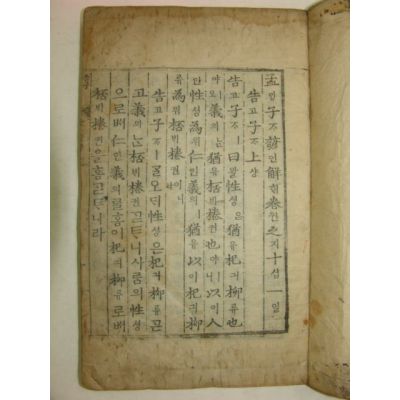 孟ᄆᆡᆼ子ᄌᆞ諺언解ᄒᆡ卷권之지十십一일
告고子ᄌᆞ上샹
告고子ᄌᆞㅣ曰왈性셩은猶유杞긔柳류也
야오義의ᄂᆞᆫ猶유桮ᄇᆡ棬권也야ㅣ니以이人
인性셩爲위仁인義의猶유以이杞긔柳
류爲위桮ᄇᆡ棬권이니라
告고子ᄌᆞㅣᄀᆞᆯ오ᄃᆡ性셩은杞긔柳류ᄀᆞᆮ
고義의ᄂᆞᆫ桮ᄇᆡ棬권ᄀᆞᄐᆞ니사ᄅᆞᆷ의性셩
으로ᄡᅥ仁인義의ᄅᆞᆯ홈이杞긔柳류로ᄡᅥ
桮ᄇᆡ棬권을홈ᄀᆞᄐᆞ니라